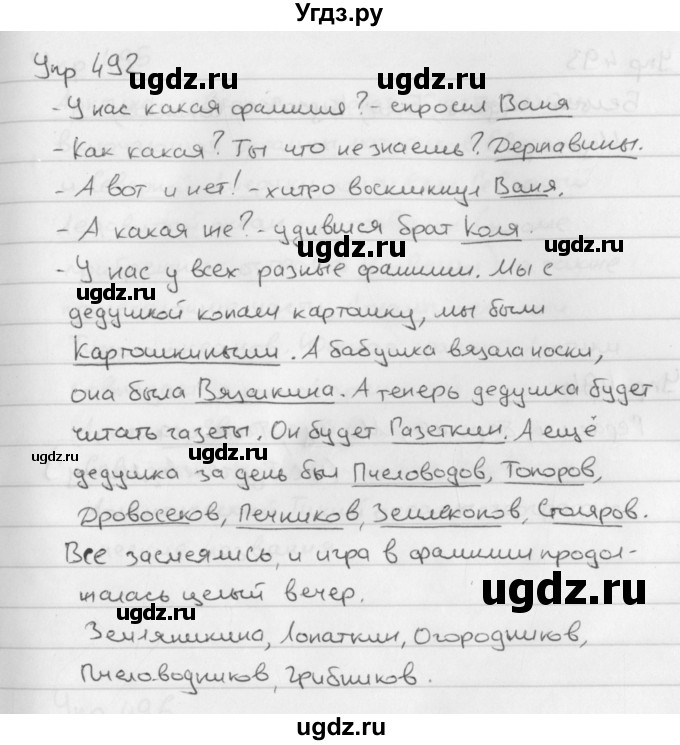 Угдз.ру
Упр 492
ugdz.ru ugdz.ru
- У нас какая фамилия? - спросил Ваня
- Как какая? Ты что не знаешь? Державины.
ugdz.ru ugdz.ru
- А вот и нет! - хитро воскликнул Ваня.
- А какая же? - удивился брат Коля.
ugdz.ru ugdz.ru
- У нас у всех разные фамилии. Мы с
ugdz.ru
дедушкой копали картошку, мы были
ugdz.ru
Картошкиными. А бабушка вязала носки,
она была Вязалкина. А теперь дедушка будет
читать газеты. Он будет Газеткин. А ещё
ugdz.ru ugdz.ru
дедушка за день был Пчеловодов, Топоров,
Дровосеков, Печников, Землекопов, Столяров.
Все засмеялись, и игра в фамилии продол-
жалась целый вечер.
ugdz.ru
ugdz.ru
Земляникина, Лопаткин, Огородников,
Пчеловодников, Грибников.
ugdz.ru
ugdz.ru